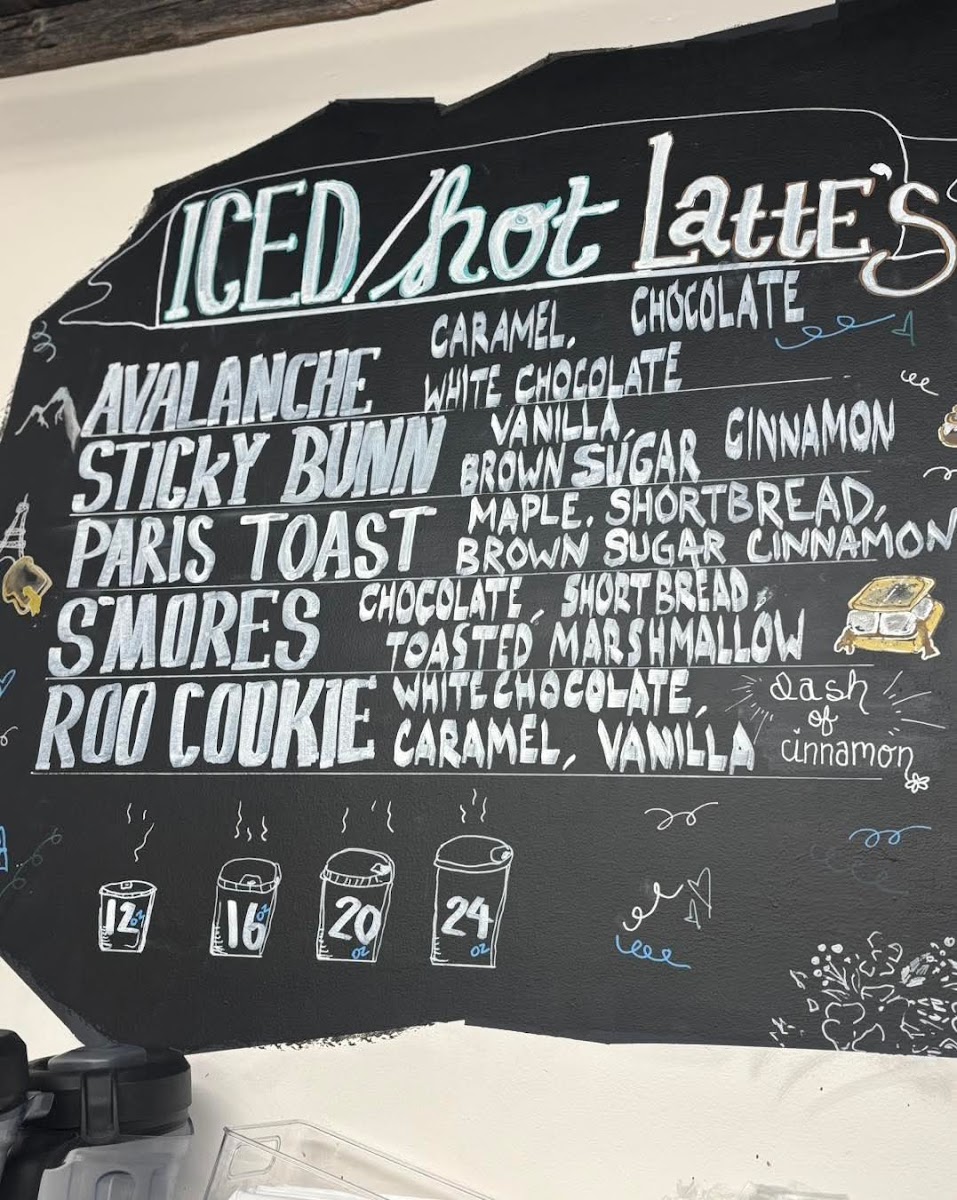 ICED/hot LattE's
AVALANCHE CARAMEL. CHOCOLATE
WHITE CHOCOLATE
STICKY BUNN VANILLA, CINNAMON
BROWN SUGAR
PARIS TOAST MAPLE. SHORTBREAD,
BROWN SUGAR CINNAMON
S'MORES CHOCOLATE, SHORTBREAD,
TOASTED MARSHMALLOW
ROO COOKIE WHITE CHOCOLATE,
CARAMEL, VANILLA
dash
of
cinnamon
12 oz 16 oz 20 oz 24 oz